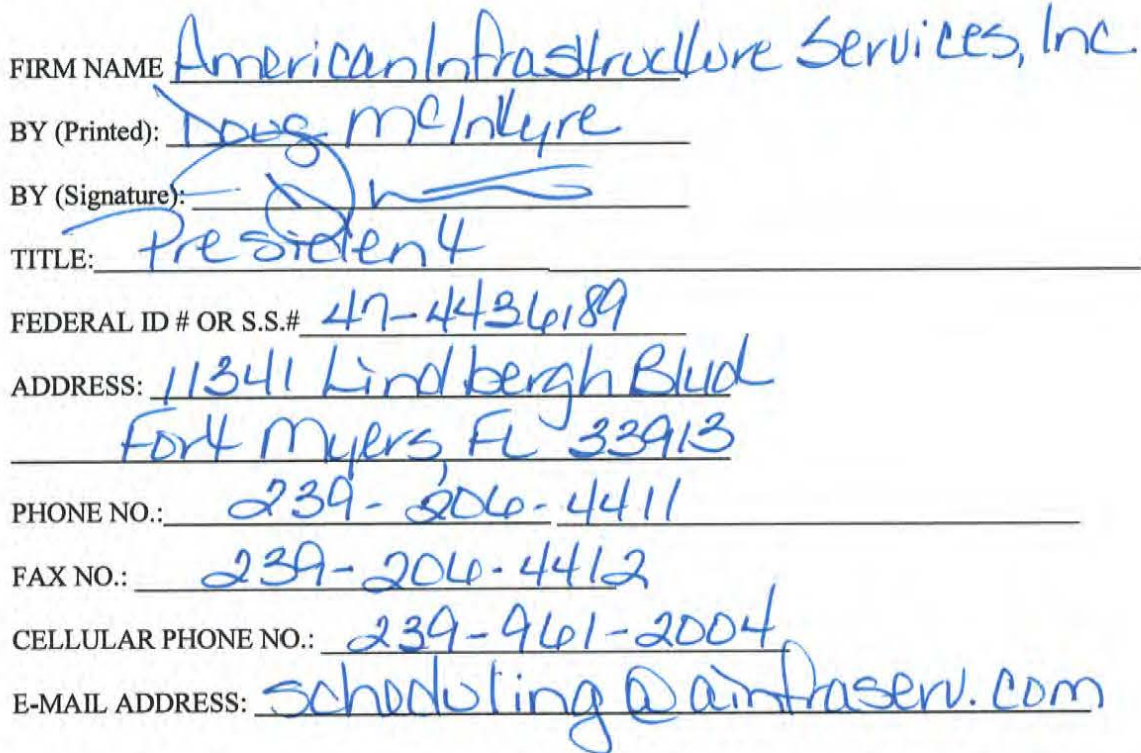 FIRM NAME American Infrastructure Services, Inc.
BY (Printed): Doug McIntyre
BY (Signature):
TITLE: President
FEDERAL ID # OR S.S.# 47-4436189
ADDRESS: 11341 Lindbergh Blvd
Fort Myers, FL 33913
PHONE NO.: 239-206-4411
FAX NO.: 239-206-4412
CELLULAR PHONE NO.: 239-961-2004
E-MAIL ADDRESS: scheduling@ainfraserv.com